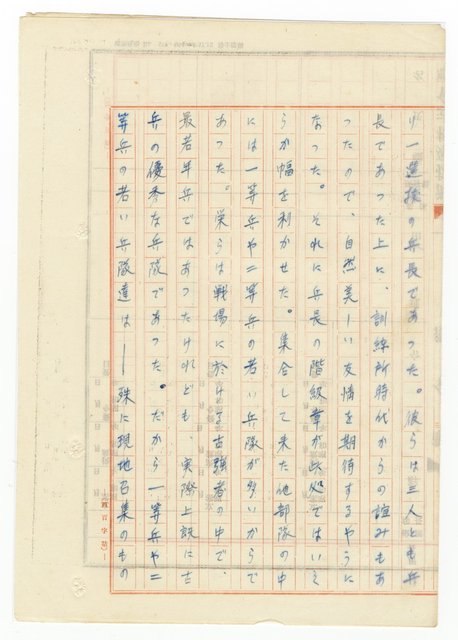 り一選抜の兵長であった。彼らは三人とも兵
長であった上に、訓練所時代からの誼みもあ
ったので、自然美しい友情を期待するやうに
なった。それに兵長の階級章が此処ではいく
らか幅を利かせた。集合して来た他部隊の中
には一等兵や二等兵の若い兵隊が多いからで
あった。栄らは戦場に於ける古強者の中で、
最若年兵ではあったけれども、実際上既に古
兵の優秀な兵隊であった。だから一等兵や二
等兵の若い兵隊達は——殊に現地召集のもの